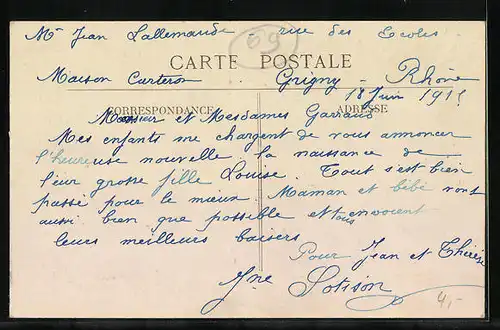 Mr Jean Lallemande - rue des Ecoles
69
CARTE POSTALE
Maison Carteron. Grigny - Rhône
18 Juin 191
CORRESPONDANCE
ADRESSE
Monsieur et Mesdames Garraud
Mes enfants me chargent de vous annoncer
l'heureuse nouvelle la naissance de
leur grosse fille Louise. Tout s'est bien
passé pour le mieux. Maman et bébé vont
aussi bien que possible et tous envoient
leurs meilleurs baisers
Pour Jean et Thérèse
Jne Sotison
4,-